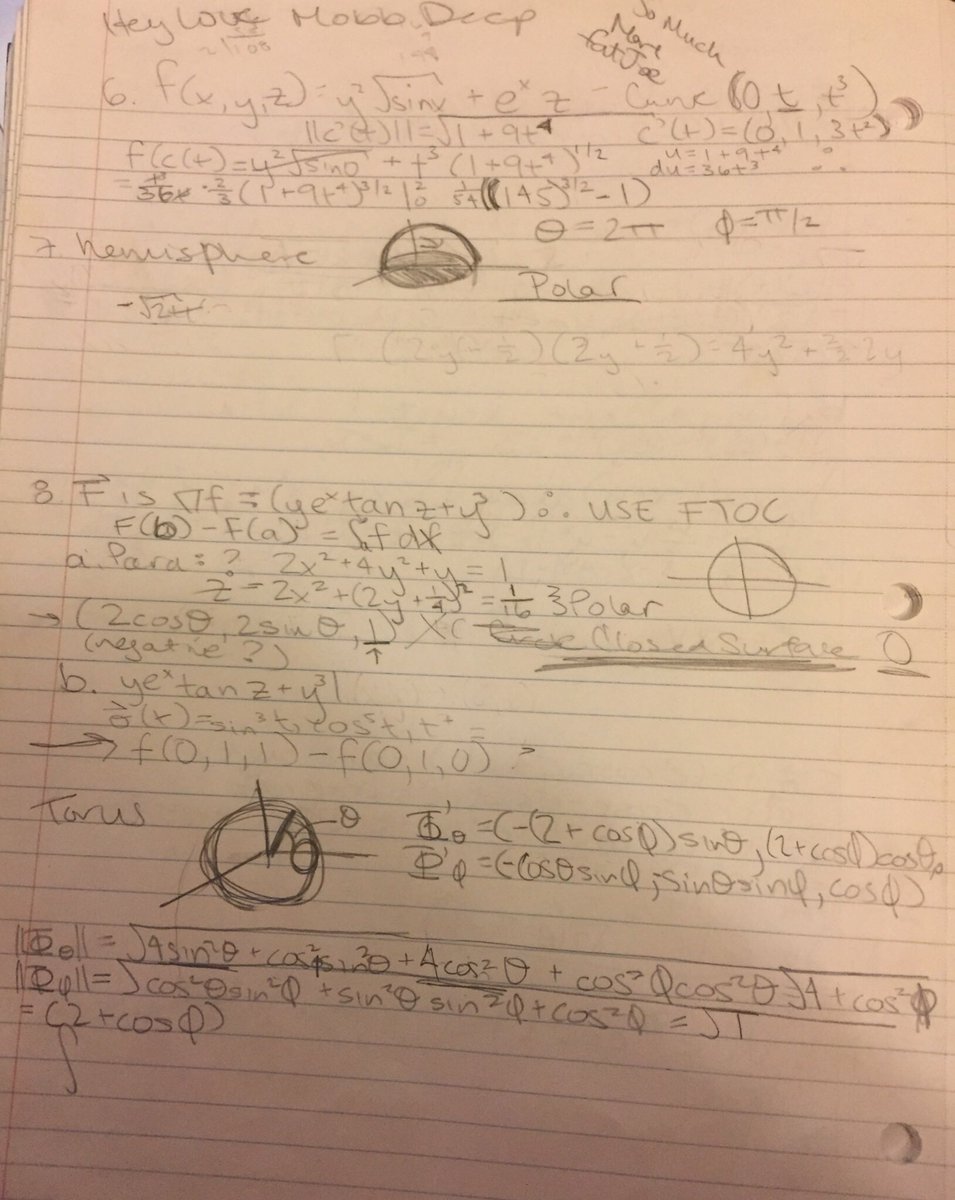 Hey Love Mobb Deep
So Much
More
Fat Joe
6. f(x,y,z) = y²√sinx + eˣ z - Curve (0, t, t³)
||c'(t)|| = √1 + 9t⁴ c'(t) = (0, 1, 3t²)
f(c(t) = y²√sin0 + t³ (1+9t⁴)^1/2 u = 1+9t⁴
du = 36t³
= t³/36x · 2/3 (1+9t⁴)^3/2 |²₀ 1/54((145)^3/2 - 1)
θ = 2π φ = π/2
7. hemisphere
Polar
-√24
(2y - 1/2)(2y - 1/2) = 4y² + 2/2 2y
8. F is ∇f = (yeˣtan z + y³) ∴ USE FTOC
F(b) - F(a) = ∫f dx
a. Para: ? 2x² + 4y² + y = 1
z = 2x² + (2y + 1/4)² = 1/16 } Polar
→ (2cosθ, 2sinθ, 1) Closed Surface 0
(negative?) ↑
b. yeˣtan z + y³|
σ(t) = sin³t, cos⁵t, t⁺ =
→ f(0,1,1) - f(0,1,0) ?
Torus θ Φ'θ = (-(2 + cosφ) sinθ, (2+cosφ)cosθ,
Φ'φ = (-cosθsinφ, -sinθsinφ, cosφ)
||Φθ|| = √4sin²θ + cos²φsin²θ + 4cos²θ + cos²φcos²θ √4 + cos²φ
||Φφ|| = √cos²θsin²φ + sin²θ sin²φ + cos²φ = √1
= (2 + cosφ)
∫